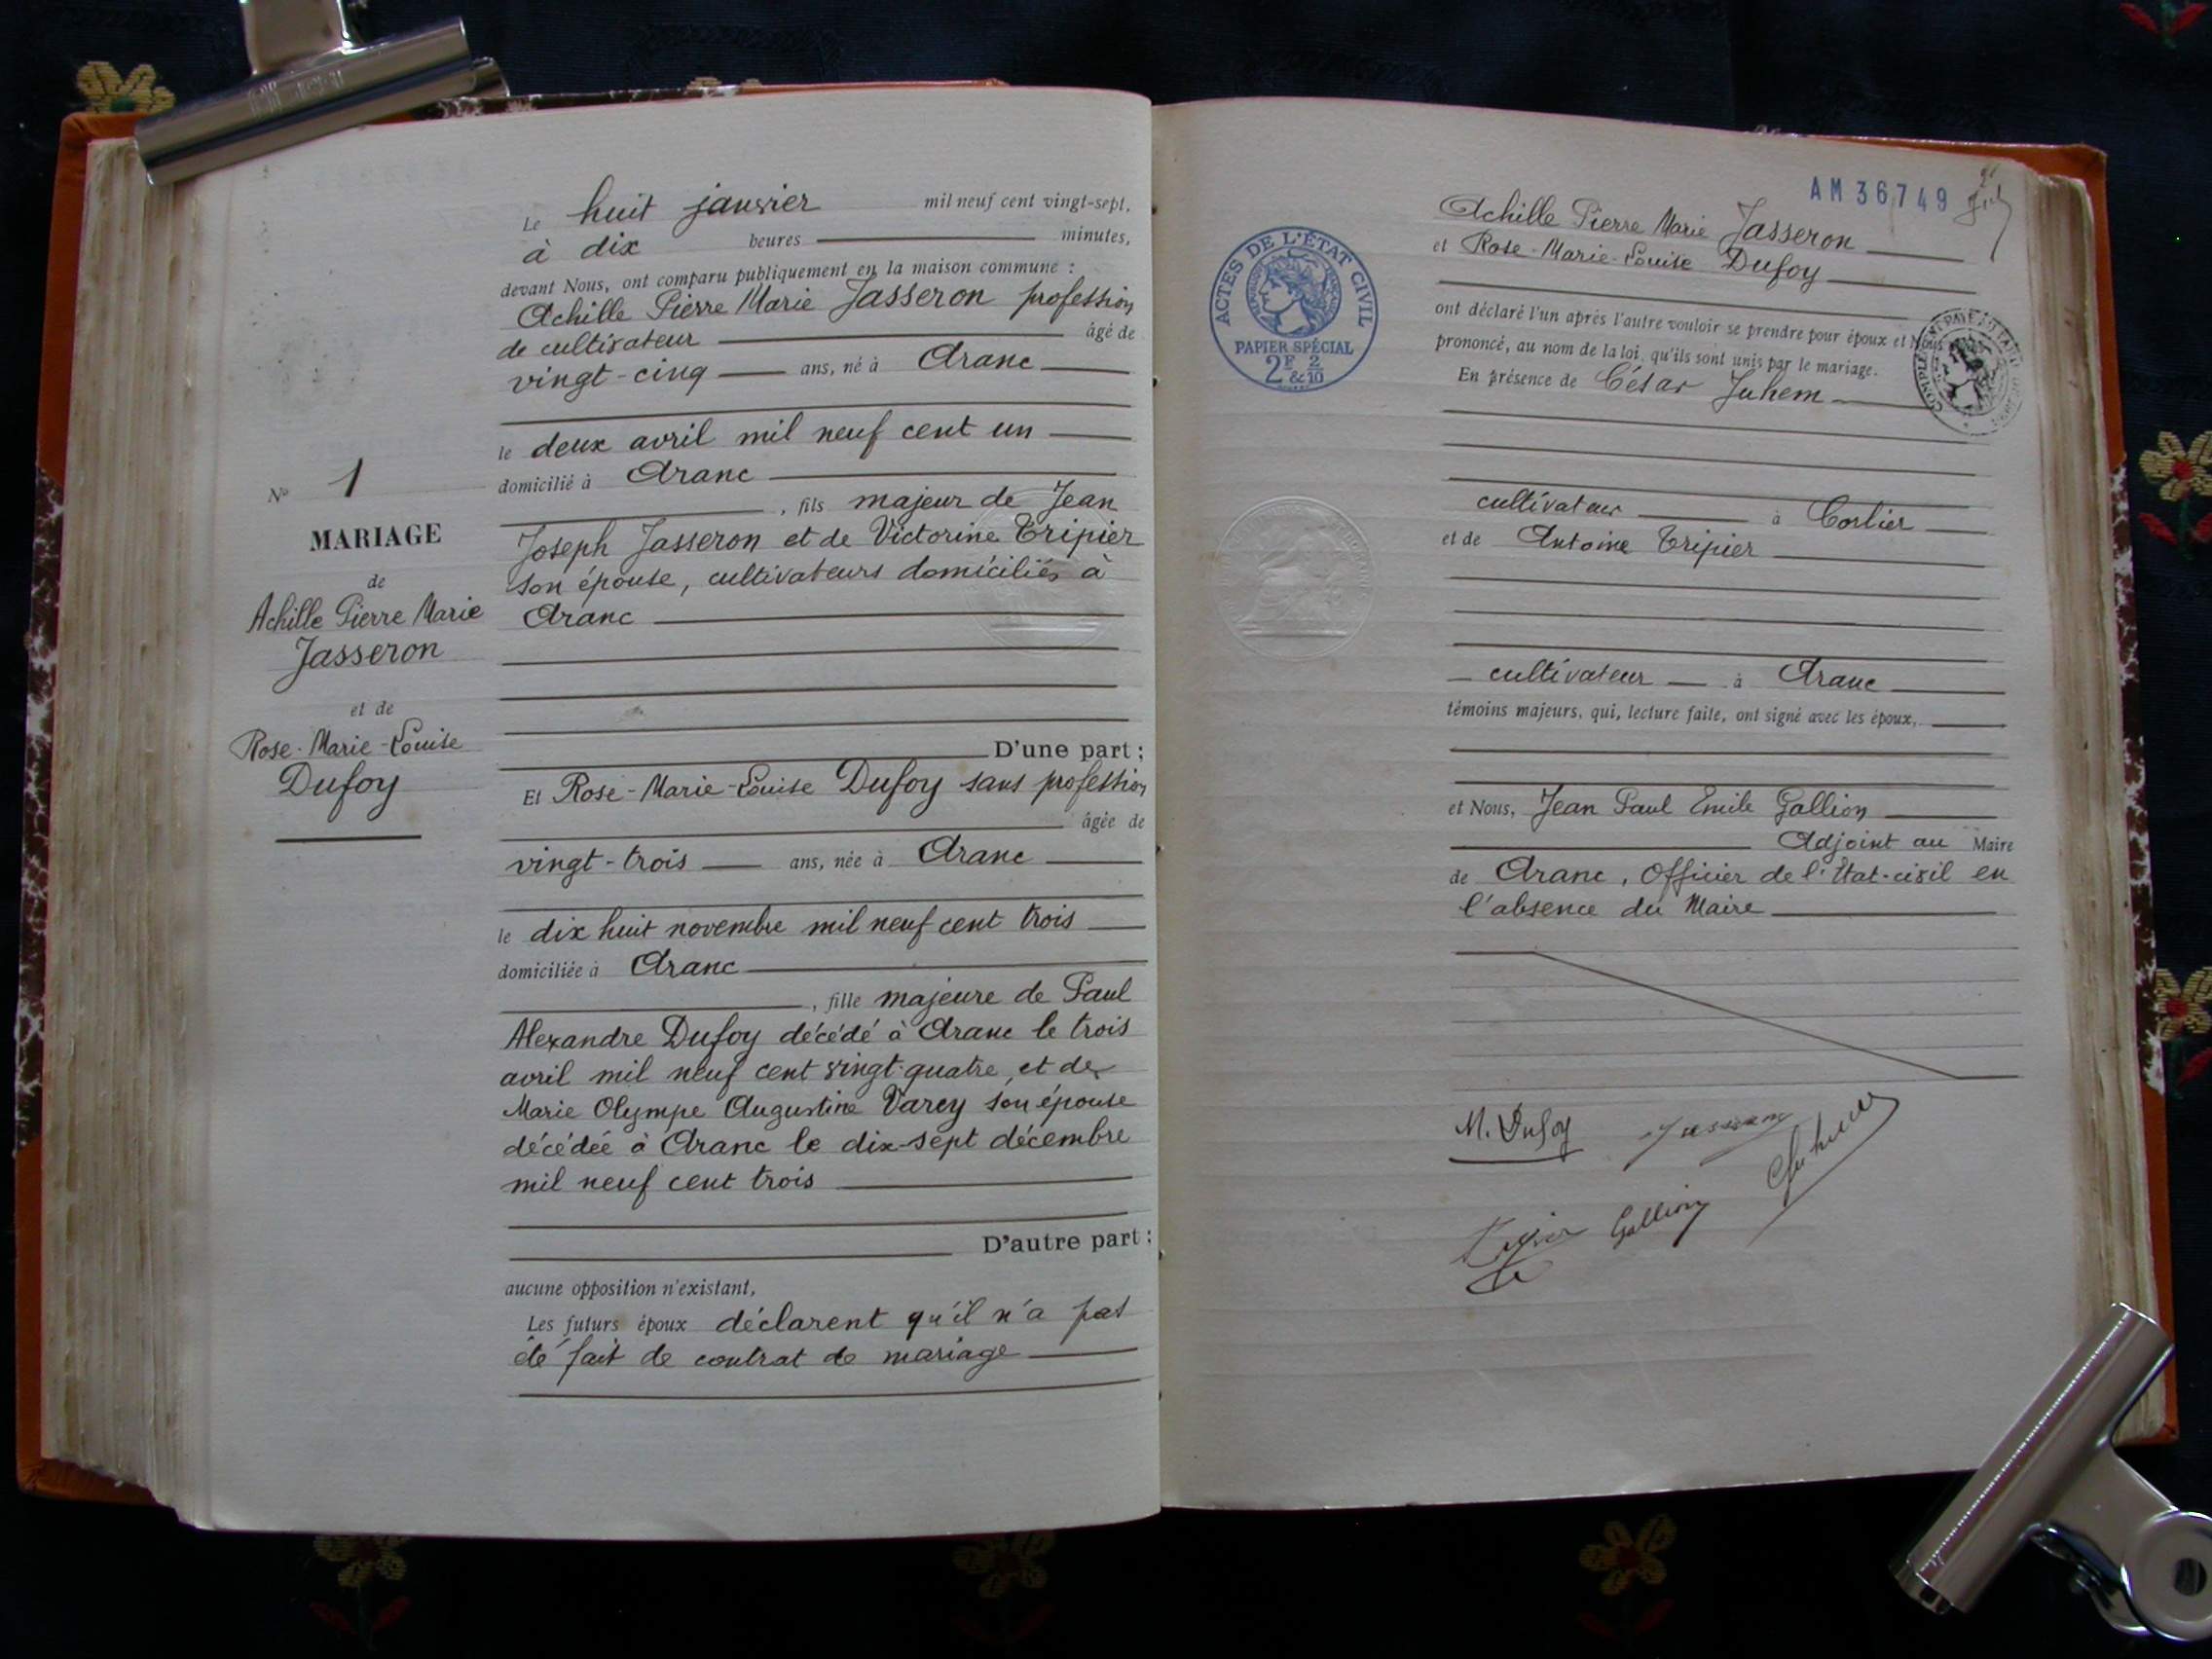 Le huit janvier mil neuf cent vingt-sept,
à dix heures minutes,
devant Nous, ont comparu publiquement en la maison commune :
Achille Pierre Marie Jasseron profession
de cultivateur âgé de
vingt-cinq ans, né à Aranc
le deux avril mil neuf cent un
domicilié à Aranc
, fils majeur de Jean
Joseph Jasseron et de Victorine Tripier
son épouse, cultivateurs domiciliés à
Aranc
D'une part ;
Et Rose-Marie-Louise Dufoy sans profession
âgée de
vingt-trois ans, née à Aranc
le dix huit novembre mil neuf cent trois
domiciliée à Aranc
, fille majeure de Paul
Alexandre Dufoy décédé à Aranc le trois
avril mil neuf cent vingt-quatre, et de
Marie Olympe Augustine Varey son épouse
décédée à Aranc le dix-sept décembre
mil neuf cent trois
D'autre part ;
aucune opposition n'existant,
Les futurs époux déclarent qu'il n'a pas
été fait de contrat de mariage
N° 1
MARIAGE
de
Achille Pierre Marie
Jasseron
et de
Rose-Marie-Louise
Dufoy
AM 36749
Achille Pierre Marie Jasseron
et Rose-Marie-Louise Dufoy
ont déclaré l'un après l'autre vouloir se prendre pour époux et Nous avons
prononcé, au nom de la loi, qu'ils sont unis par le mariage.
En présence de César Juhem
cultivateur à Corlier
et de Antoine Tripier
cultivateur à Aranc
témoins majeurs, qui, lecture faite, ont signé avec les époux,
et Nous, Jean Paul Emile Gallion
Adjoint au Maire
de Aranc, Officier de l'Etat-civil en
l'absence du Maire
M. Dufoy Jasseron Juhem
Tripier Gallion
ACTES DE L'ÉTAT CIVIL
PAPIER SPÉCIAL
2F & 2/10